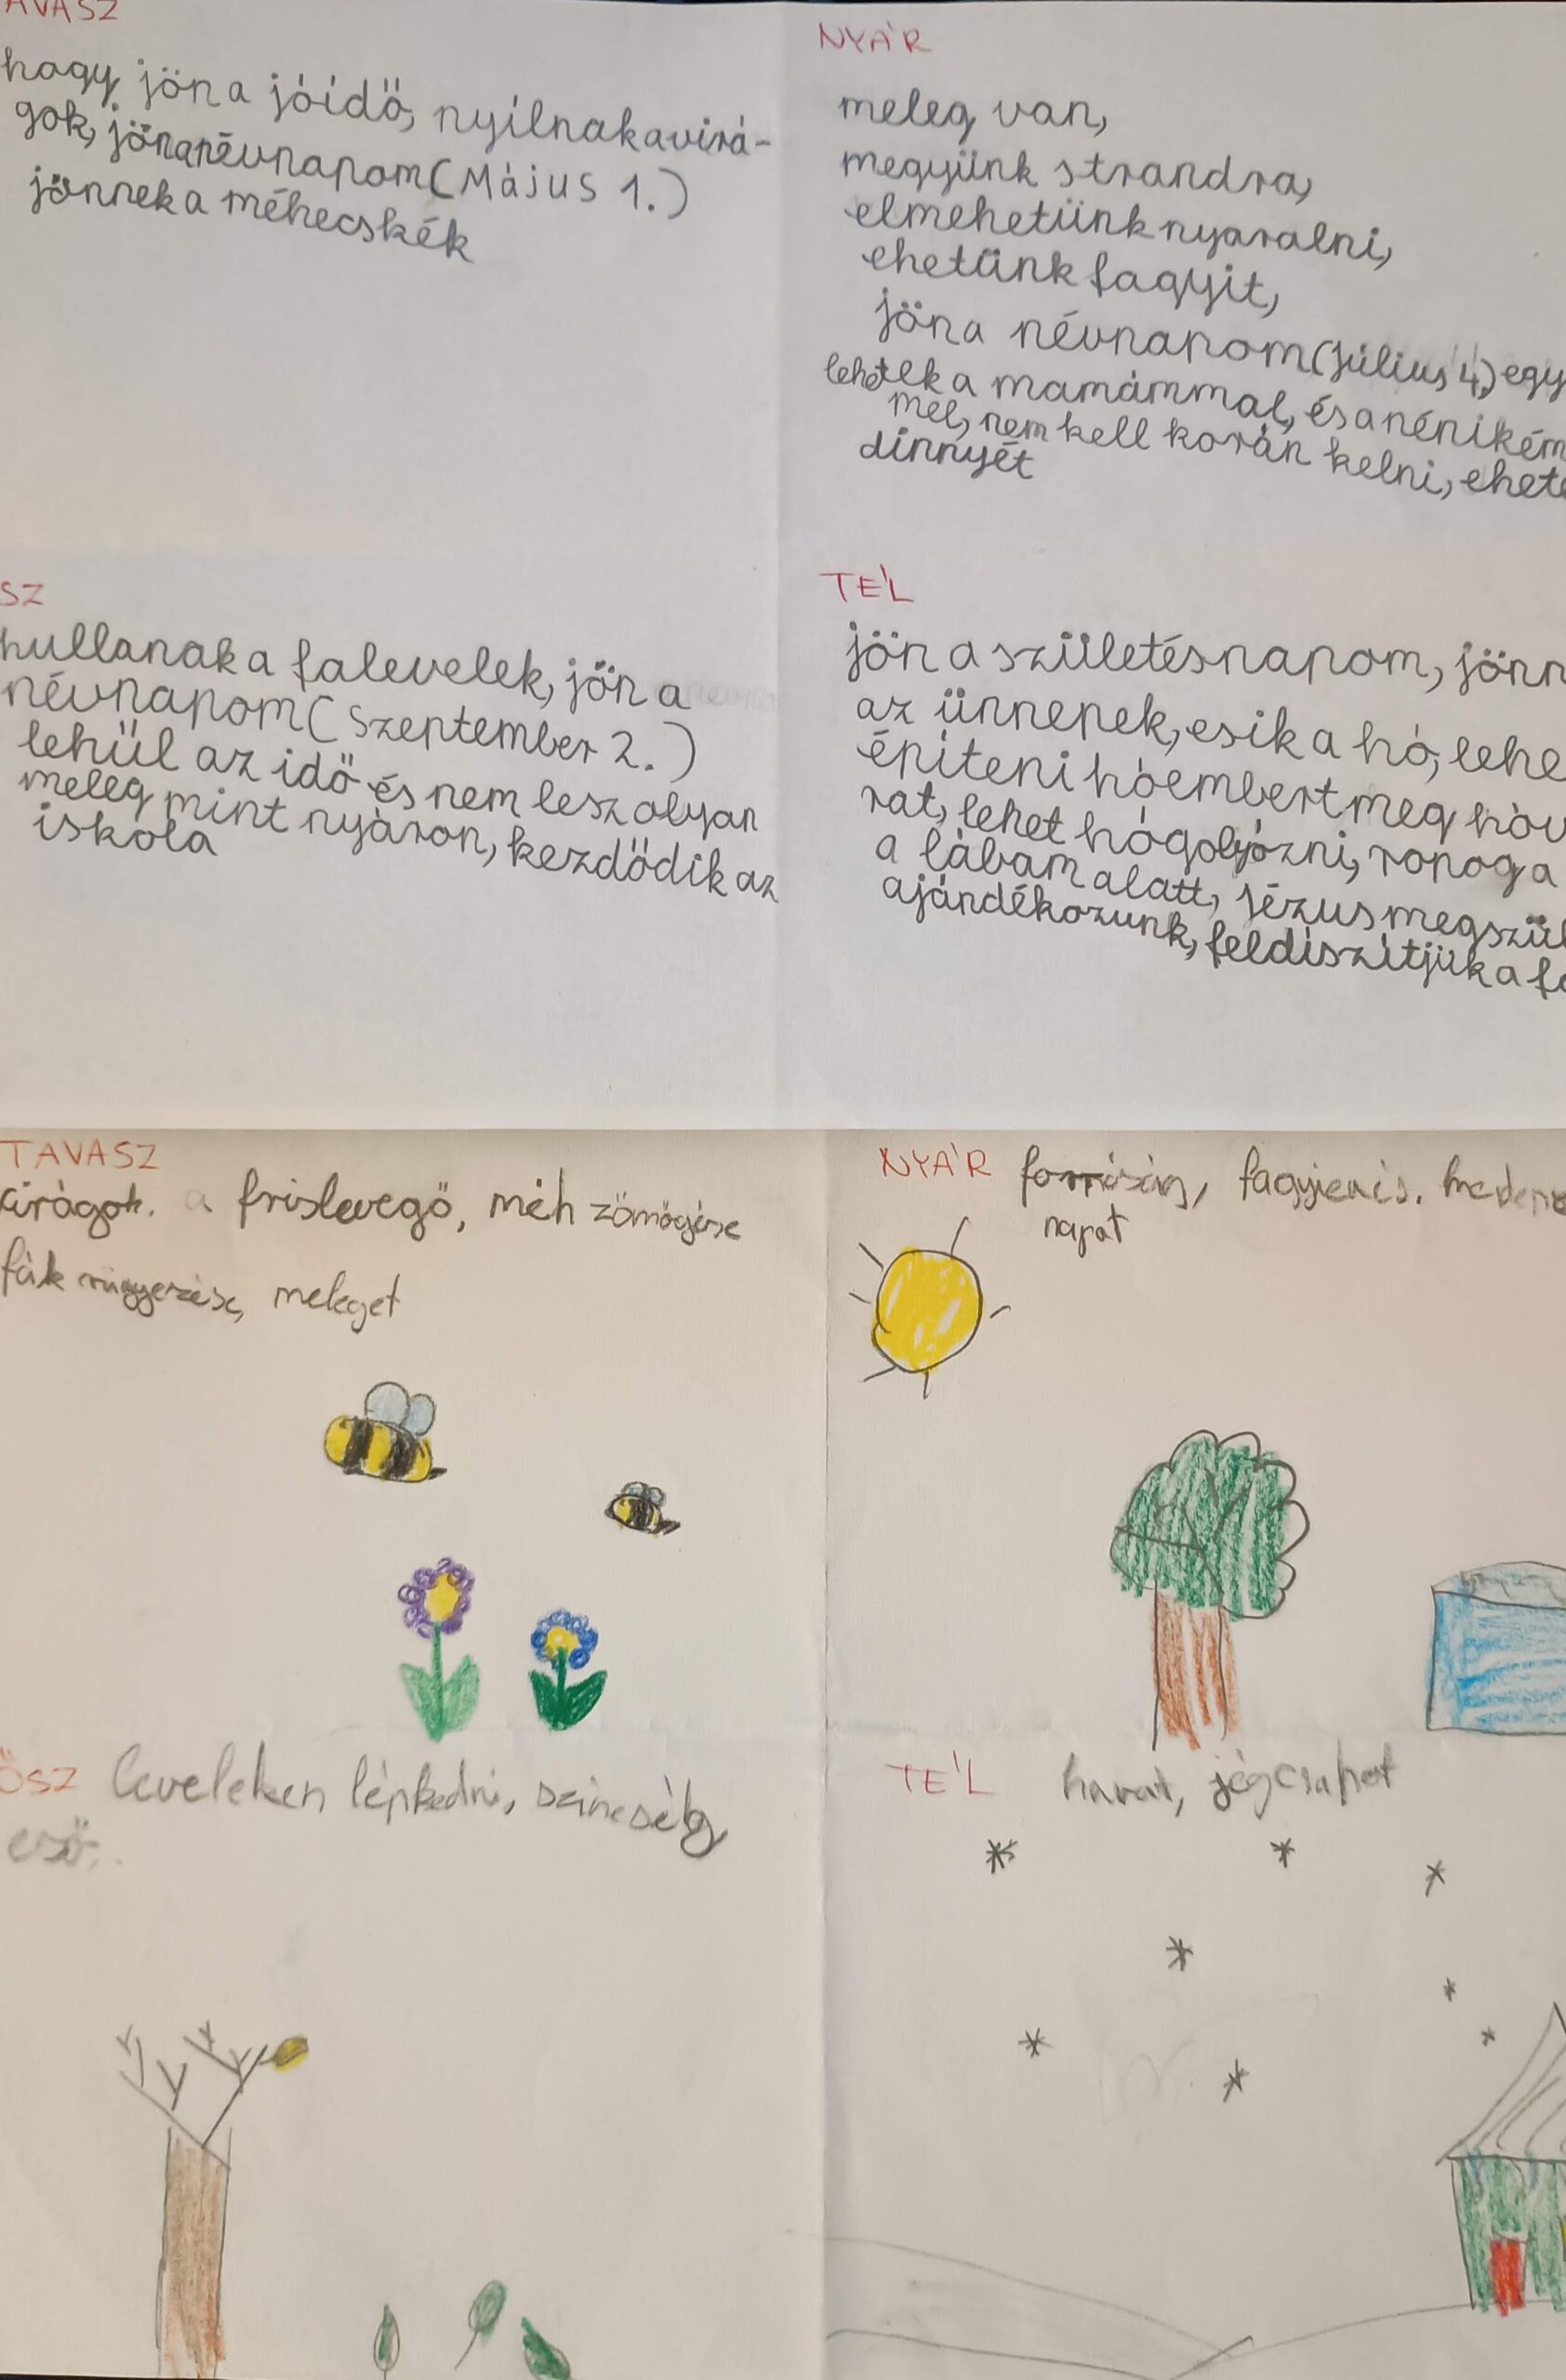 AVASZ
hogy jön a jóidő, nyílnakavirá-
gok, jönanévnapom(Május 1.)
jönnek a méhecskék
NYÁR
meleg van,
megyünk strandra,
elmehetünk nyaralni,
ehetünk fagyit,
jön a névnapom(Július 4,) egy
lehetek a mamámmal, és a nénikém
mel, nem kell korán kelni, ehete
dinnyét
SZ
hullanak a falevelek, jön a
névnapom(Szeptember 2.)
lehűl az idő és nem lesz olyan
meleg mint nyáron, kezdődik az
iskola
TÉL
jön a születésnapom, jönn
az ünnepek, esik a hó, lehe
építeni hóembert meg hóv
rat, lehet hógolyózni, ropog a
a lábam alatt, Jézus megszül
ajándékozunk, feldíszítjük a fe
TAVASZ
virágok. a frislevegő, méh zömögése
fák rügyezése, meleget
NYÁR forróság, fagyienis.
napot
ŐSZ leveleken lépkedni, szineség
eső.
TÉL havat, jégcsapot